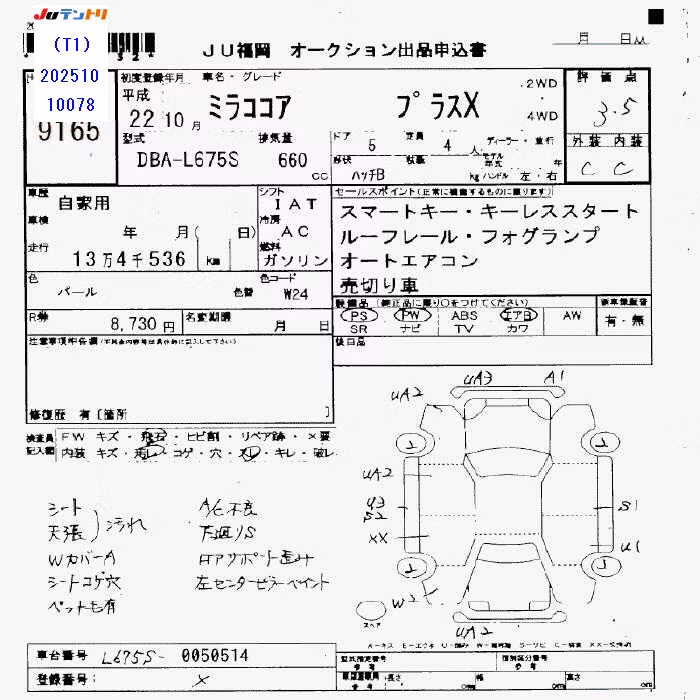 Juテントリ
(T1)
202510
10078
JU福岡 オークション出品申込書
月 日
9165
初度登録年月 車名・グレード
平成
22 10 月
ミラココア プラスX
2WD
4WD
評価点
3.5
外装 内装
C C
型式
DBA-L675S
排気量
660 cc
ドア 5
定員 4 人
ディーラー・並行
形状 ハッチB
積載 kg
モデル年式 年
ハンドル 左・右
車歴 自家用
シフト IAT
車検 年 月( 日)
冷房 AC
走行 13万4千536 km
燃料 ガソリン
セールスポイント(正常に機能するものに限ります)
スマートキー・キーレススタート
ルーフレール・フォグランプ
オートエアコン
売切り車
色 パール 色替
色コード W24
装備品(純正品に限り○をつけてください)
PS PW ABS エアB AW
SR ナビ TV カワ
新車保証書
有・無
R券 8,730 円
名変期限 月 日
注意事項申告欄
後日品
修復歴 有〔箇所 〕
検査員記入欄
FW キズ・飛石・ヒビ割・リペア跡・×要
内装 キズ・汚レ・コゲ・穴・スレ・キレ・破レ
シート
天張 )汚れ
WカバーA
シートコゲ穴
ペット毛有
A/C不良
下廻りS
左センターピラーペイント
UA2
UA3
A1
UA2
U3
S2
XX
S1
U1
UA2
スペア
車台番号 L675S- 0050514
登録番号 ×
型式指定番号 参考
類別区分番号 参考
長さ 幅 高さ
参考